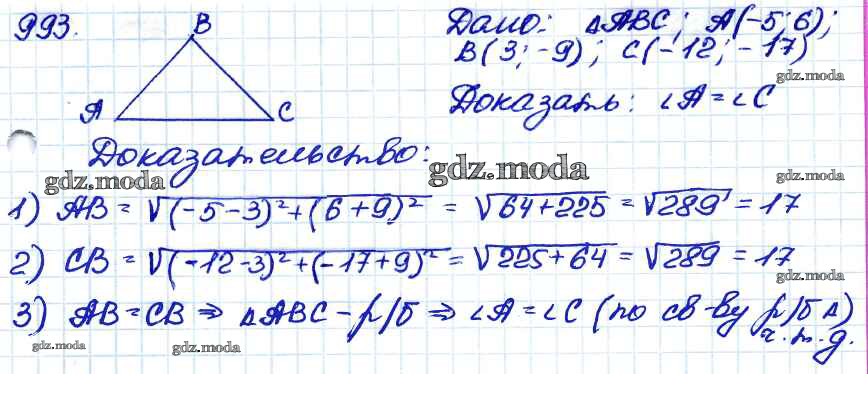 993.
B
A
C
Дано: △ABC; A(-5; 6);
B(3; -9); C(-12; -17)
gdz.moda
Доказать: ∠A = ∠C
gdz.moda
Доказательство:
gdz.moda
gdz.moda
gdz.moda
1) AB = √(-5-3)²+(6+9)² = √64+225 = √289 = 17
gdz.moda
2) CB = √(-12-3)²+(-17+9)² = √225+64 = √289 = 17
gdz.moda
3) AB = CB ⇒ △ABC - р/б ⇒ ∠A = ∠C (по св-ву р/б △)
ч.т.д.
gdz.moda
gdz.moda